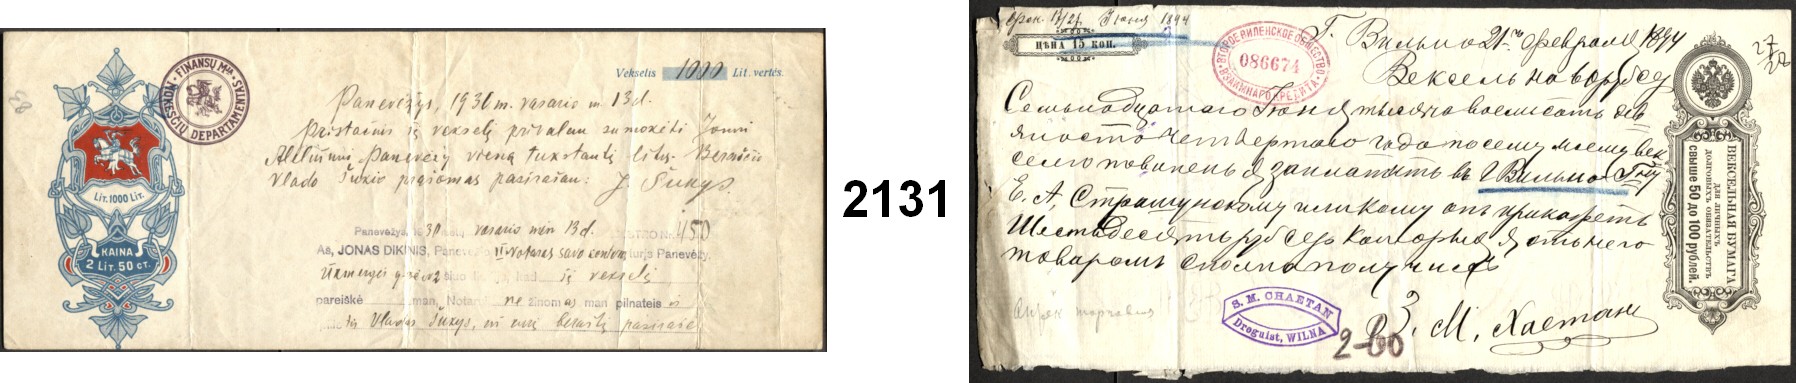 Vekselis 1000 Lit. vertės.
FINANSŲ M-JA
MOKESČIŲ DEPARTAMENTAS
Panevėžys, 1930 m. vasario m. 13 d.
Pristačius šį vekselį privalau sumokėti
Panevėžy vieną tūkstantį litų.
Vlado prašomas pasirašau: J. Šukys
LIT. 1000 LIT.
KAINA
2 LIT. 50 CT.
Panevėžys, 1930 vasario mėn 13 d. Nr. 450
As, JONAS DIKINIS, Panevėžio II Notaras savo kontoroje Panevėžy,
šį vekselį
pareiškė man, Notarui ne žinomas man pilnateis
Vladas Šukys,
2131
Срок. 17/21 Июня 1894
ЦѢНА 15 КОП.
Г. Вильно 21 февраля 1894
ВТОРОЕ ВИЛЕНСКОЕ ОБЩЕСТВО
086674
ВЗАИМНАГО КРЕДИТА
Вексель на 60 руб сер
Семьнадцатаго Июня тысяча восемьсотъ девя
яносто четвертого года по сему моему век
селю повиненъ я заплатить въ г Вильно Гну
Е. А. Страшунскому или кому онъ прикажетъ
Шестьдесятъ руб сер которые я отъ него
товаромъ сполна получилъ
З. М. Хаетанъ
S. M. CHAETAN
Droguist, WILNA
2-60
27
22
ВЕКСЕЛЬНАЯ БУМАГА
для личныхъ
долговыхъ обязательствъ
свыше 50 до 100 рублей.